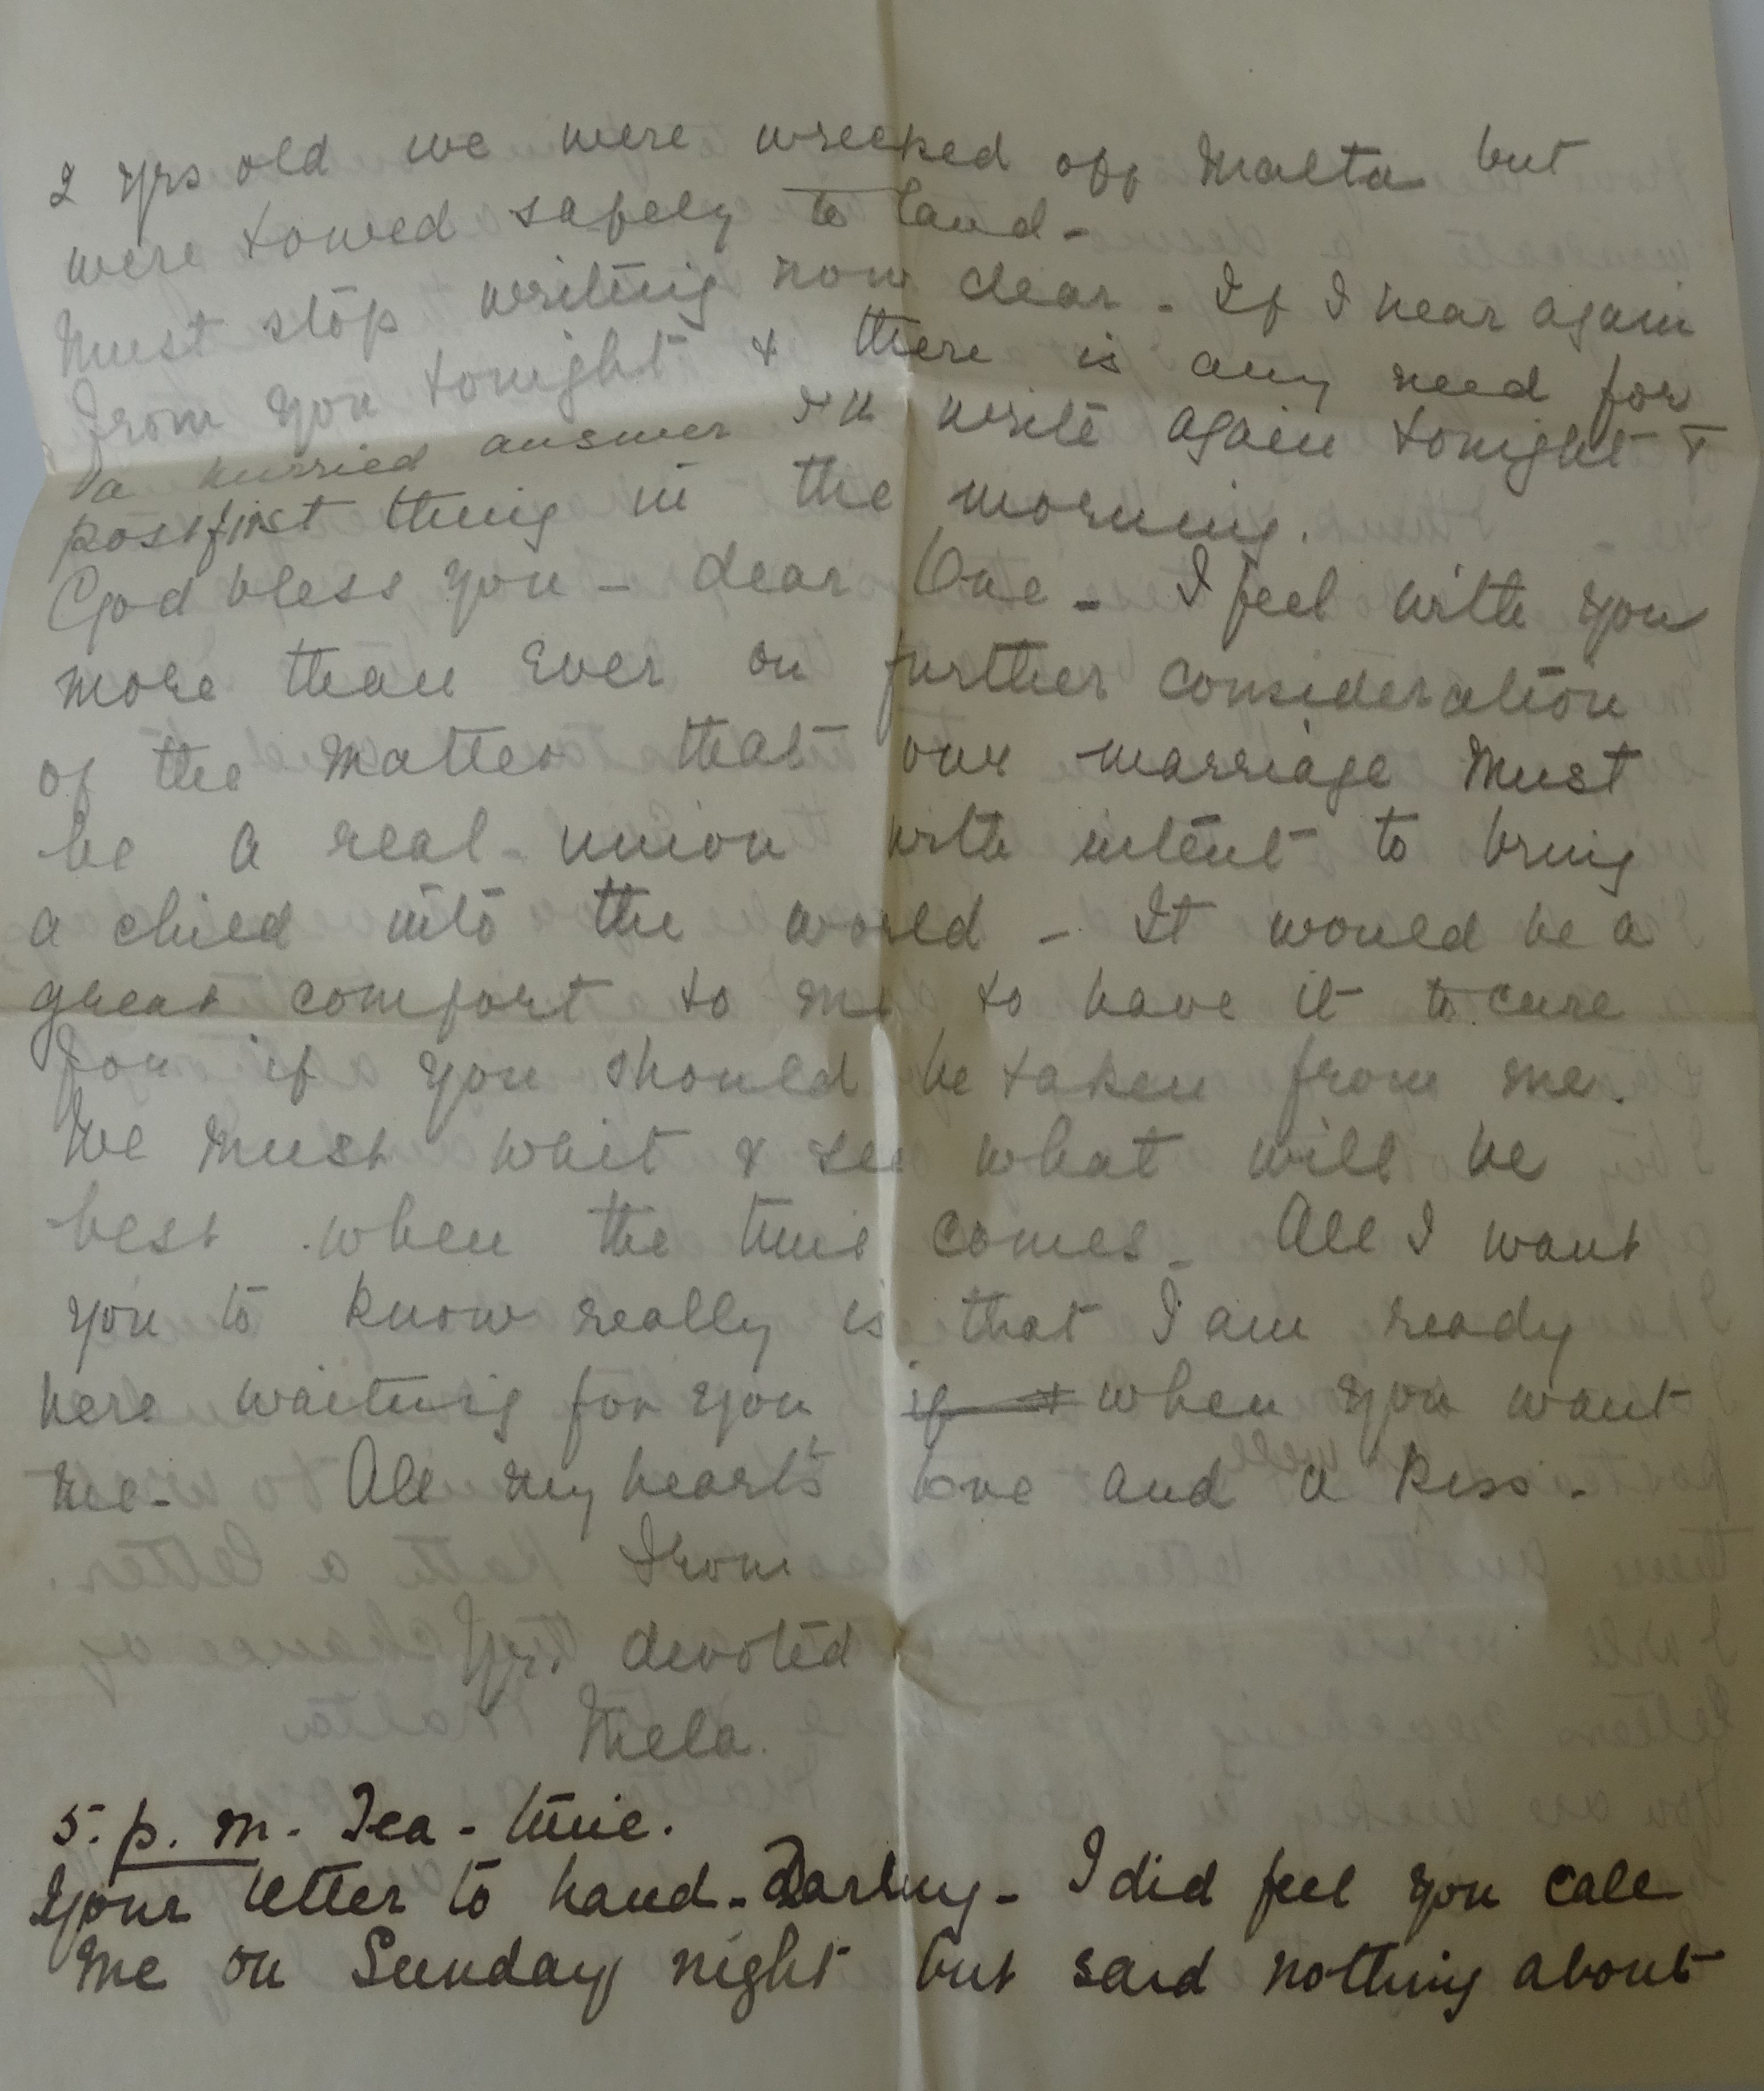 2 yrs old we were wrecked off Malta but
were towed safely to land -
Must stop writing now dear - If I hear again
from you tonight & there is any need for
a hurried answer I'll write again tonight &
post first thing in the morning.
God bless you - dear One - I feel with you
more than ever on further consideration
of the matter that our marriage must
be a real - union with intent to bring
a child into the world - It would be a
great comfort to me to have it to care
for if you should be taken from me.
We must wait & see what will be
best when the time comes - All I want
you to know really is that I am ready
here waiting for you if when you want
me - All my heart's love and a kiss -
From
Yrs. devoted
Mela.
5. p. m. Tea - time.
Your letter to hand - Darling - I did feel you call
me on Sunday night but said nothing about